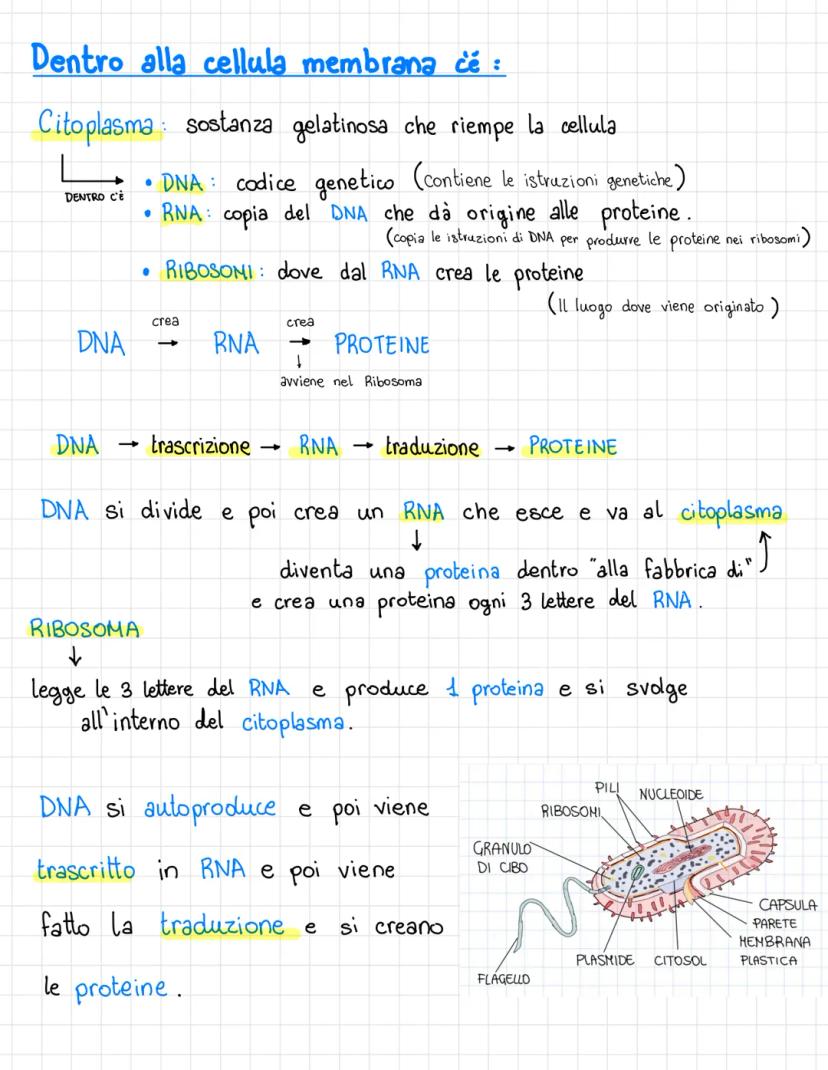 Dentro alla cellula membrana c'é :
Citoplasma : sostanza gelatinosa che riempe la cellula
DENTRO C'È
• DNA : codice genetico (contiene le istruzioni genetiche)
• RNA : copia del DNA che dà origine alle proteine.
(copia le istruzioni di DNA per produrre le proteine nei ribosomi)
• RIBOSOMI : dove dal RNA crea le proteine
(Il luogo dove viene originato)
crea crea
DNA → RNA → PROTEINE
↓
avviene nel Ribosoma
DNA → trascrizione → RNA → traduzione → PROTEINE
DNA si divide e poi crea un RNA che esce e va al citoplasma
↓
diventa una proteina dentro "alla fabbrica di"
e crea una proteina ogni 3 lettere del RNA.
RIBOSOMA
↓
legge le 3 lettere del RNA e produce 1 proteina e si svolge
all'interno del citoplasma.
DNA si autoproduce e poi viene
trascritto in RNA e poi viene
fatto la traduzione e si creano
le proteine.
PILI
NUCLEOIDE
RIBOSOMI
GRANULO
DI CIBO
CAPSULA
PARETE
MEMBRANA
PLASTICA
PLASMIDE
CITOSOL
FLAGELLO